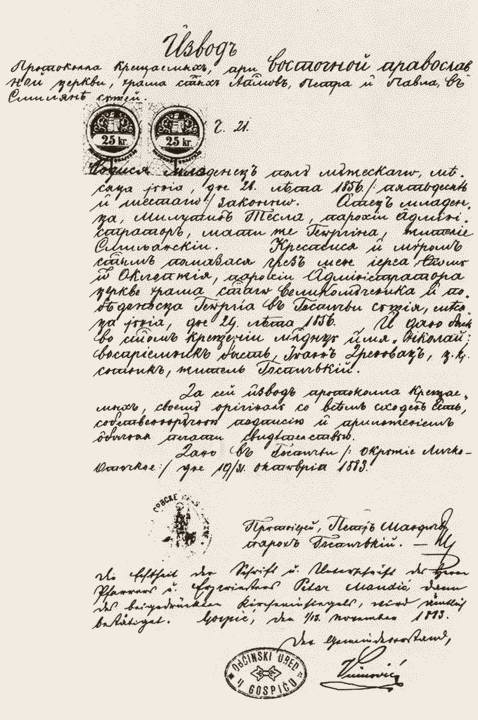 Изводъ
Протокола крещаемыхъ, при восточной православ
ной церкви, храма стыхъ Ап̃ловъ, Петра и Павла, въ
Смилянѣ сущей.
25 kr. 25 kr.
Ч. 21.
Родися младенецъ полу мужескаго, мѣ-
сяца іулія, дне 21. лѣта 1856 / пятьдесятъ
и шестаго / законно. Отецъ младен-
ца, Милутинъ Тесла, парохіи Админи-
страторъ, мати же Георгина, жителіе
Смилянскіи. Крестися и муромъ
стымъ помазася чрезъ мене іереа
парохіи Администратора
церкве храма стаго Великомученика и по-
бѣдоносца Георгіа въ Госпичи сущія, мѣся-
ца іулія, дне 24. лѣта 1856. И дано бысть
во стомъ крещеніи младенцу имя, Николай:
воспріемникъ бысть, Іоаннъ
сотникъ, житель Госпичкій.
За сей изводъ протокола крещае-
мыхъ, своему оригиналу во всемъ сходенъ есть,
собственноручною подписію и
обычныя печати свидѣтельствую.
Дано въ Госпичи / окружіе Личко-
Оточкое / дне 19/31. октомврія 1883.
Протоіерей, Петръ Мандичъ
парохъ Госпичкій.
Die Echtheit der Schrift u. Unterschrift des Herrn
Pfarrers u. Petar Mandić dann
des beigedrückten Kirchensiegels, wird ämtlich
bestätiget. Gospić, den 1/13. November 1883.
Der Gemeindevorstand,
OBĆINSKI URED
U GOSPIĆU